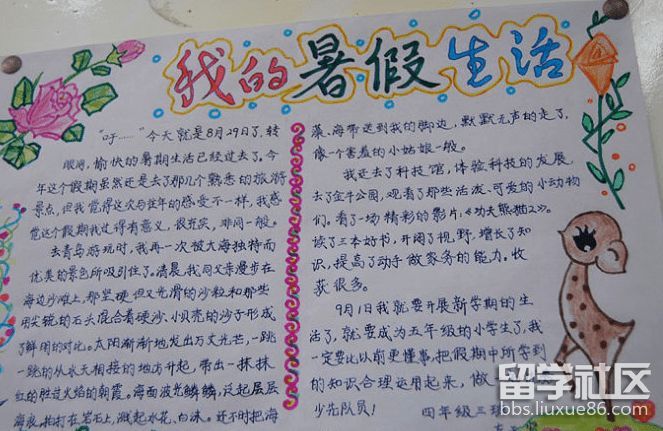 我的暑假生活
"吁……"今天就是8月29日了,转
眼间,愉快的暑期生活已经过去了。今
年这个假期虽然还是去了那几个熟悉的旅游
景点,但我觉得这次与往年的感受不一样,我感
觉这个假期我过得有意义、很充实,非同一般。
去青岛游玩时,我再一次被大海独特而
优美的景色所吸引住了。清晨,我同父亲漫步在
海边沙滩上,那坚硬但又光滑的沙粒和那些
用尖锐的石头混合着硬沙、小贝壳的沙子形成
了鲜明的对比。太阳渐渐地发出万丈光芒,一跳
一跳的从水天相接的地方开起,带出一抹抹
红的胜过火焰的朝霞。海面波光鳞鳞,泛起层层
海浪,拍打在岩石上,溅起水花、白沫。还不时把海
藻、海带送到我的脚边,默默无声的走了,
像一个害羞的小姑娘一般。
我还去了科技馆,体验科技的发展,
去了金牛公园,观看了那些活泼、可爱的小动物
们。看了一场精彩的影片,《功夫熊猫2》。
读了三本好书,开阔了视野,增长了知
识,提高了动手做家务的能力。收
获很多。
9月1日我就要开展新学期的生
活了,就要成为五年级的小学生了,我
一定要比以前更懂事,把假期中所学到
的知识合理运用起来,做
少先队员!
四年级三班
留学社区
bbs.liuxue86.com